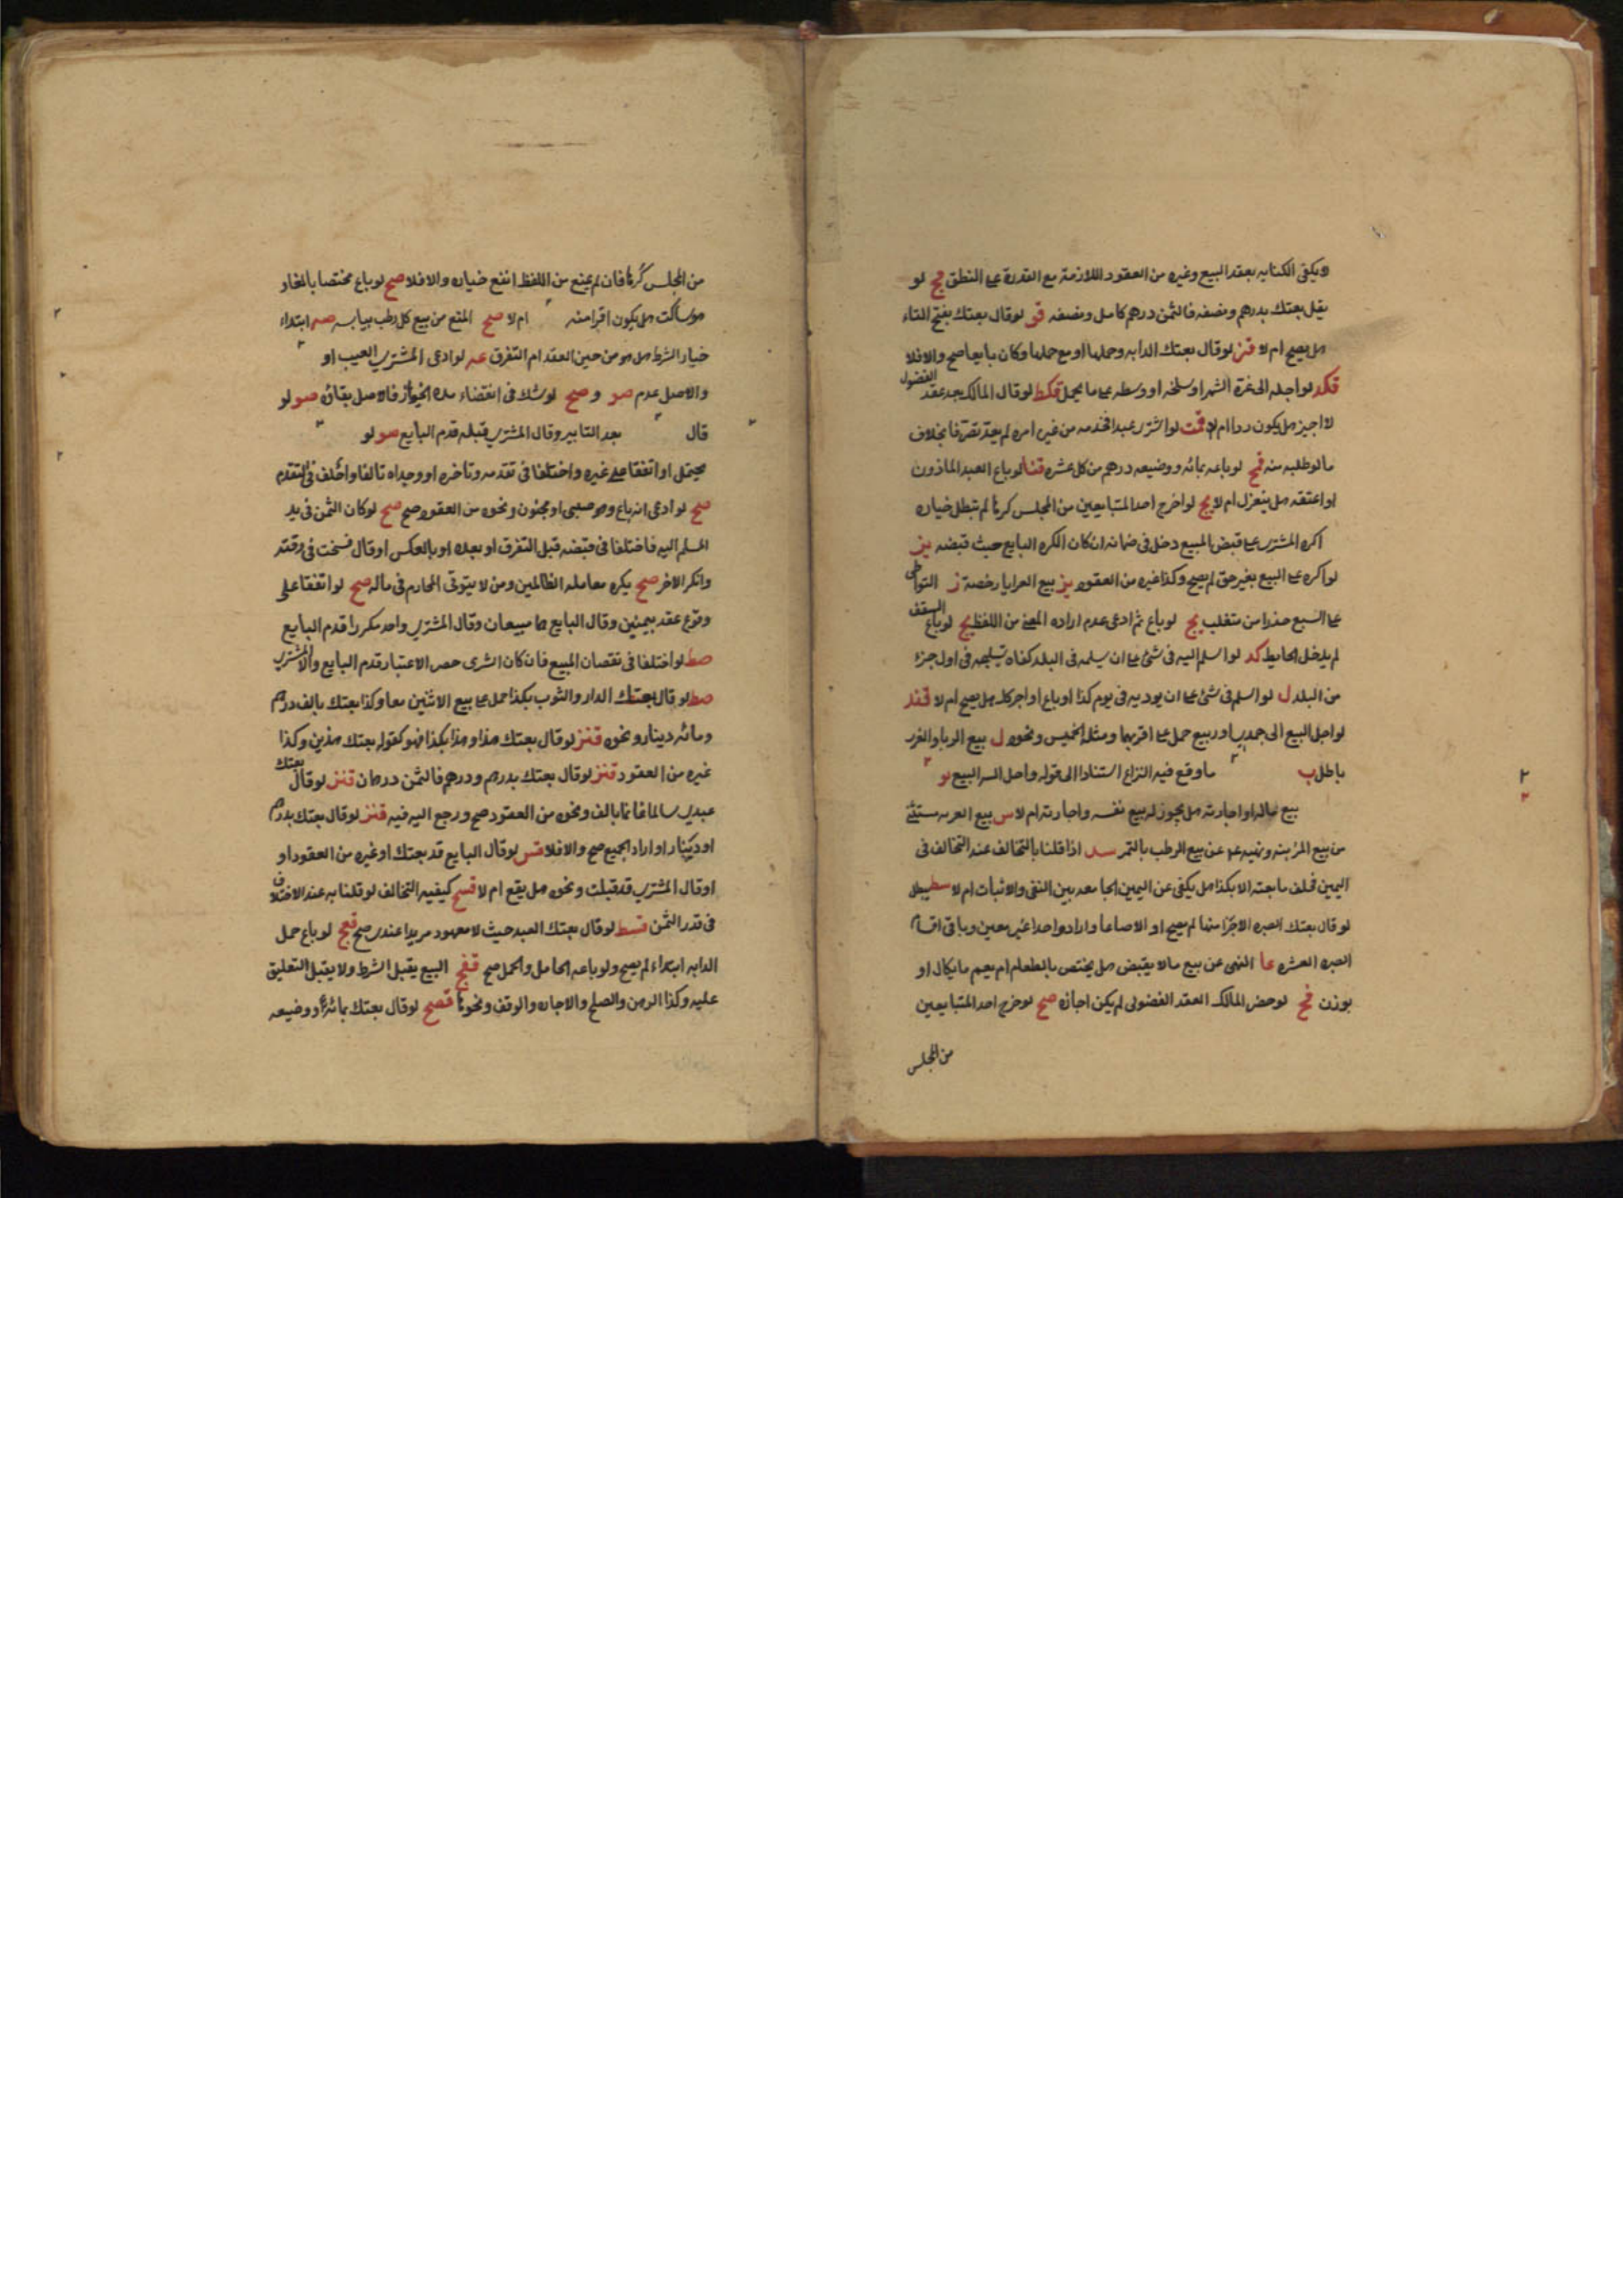 لا يكفى الكتابه بعقد البيع وغيره من العقود اللازمة مع القدرة على النطق مح لو
يقل بعتك بدرهم ونصفه فالثمن درهم كامل ونصفه قى لو قال بعتك بفتح التاء
هل يصح ام لا قنز لو قال بعتك الدابه وحملها او مع حملها وكان بايعا صح والا فلا
قكد لو اجله الى غرة الشهر او سلخه او وسطه على ما يحمل قكط لو قال المالك بعد عقد الفضولى
لا اجيز هل يكون ردا ام لا قمت لو اشترى عبدا فخدمه من غير امره لم يعد تصرفا بخلاف
ما لو طلبه منه قح لو باعه بمائه ووضيعه درهم من كل عشره قنا لو باع العبد الماذون
او اعتقه هل ينعزل ام لا يج لو اخرج احد المتبايعين من المجلس كرها لم تبطل خياره
اكره المشترى على قبض المبيع دخل فى ضمانه ان كان المكره البايع حيث قبضه يز
لو اكره على البيع بغير حق لم يصح وكذا غيره من العقود يز بيع العرايا رخصة ز التواطى
على البيع حذرا من متغلب يج لو باع ثم ادعى عدم اراده المعنى من اللفظ يح لو باع السقف
لم يدخل الحايط كد لو اسلم اليه فى شئ على ان يسلمه فى البلد كفاه تسليمه فى اول جزء
من البلد ل لو اسلم فى شئ على ان يوديه فى يوم كذا او باع او اجر كله هل يصح ام لا قند
لو اجل البيع الى جمدى او ربيع حمل على اقربهما ومثله الخميس ونحوه ل بيع الربا والغرر
باطل ب ما وقع فيه النزاع استنادا الى قوله واحل الله البيع لو
بيع ماله او اجارته هل يجوز له بيع نفسه واجارته ام لا س بيع العريه مستثنى
من بيع المزبنه ونهيه عم عن بيع الرطب بالتمر سد اذا قلنا بالتحالف عند التخالف فى
اليمين فحلف ما بعته الا بكذا هل يكفى عن اليمين الجامعه بين النفى والاثبات ام لا سط يبطل
لو قال بعتك الصبره الاجزا منها لم يصح او الا صاعا واراد واحدا غير معين وباقى اقسام
الصبره العشره عا النهى عن بيع مالا يقبض هل يختص بالطعام ام يعم ما يكال او
يوزن فح لو حضر المالك العقد الفضولى لم يكن اجازه صح لو خرج احد المتبايعين
من المجلس
من المجلس كرها فان لم يمنع من اللفظ انقع خياره والا فلا صح لو باع مختصا بالمختار
هو ساكت هل يكون اقرا منه ام لا صح المنع من بيع كل رطب بيابسه صه ابتداء
خيار الشرط هل هو من حين العقد ام التفرق عه لو ادعى المشترى العيب او
والاصل عدم صو و صح لو شك فى انقضاء مده الخيار فالاصل بقاؤه صو لو
قال بعد التابير وقال المشترى قبله قدم البايع صو لو
يحتمل او اتفقا على غيره واختلفا فى تقدمه وتأخره او وجداه تالفا واختلف فى التقدم
صح لو ادعى انه باع وهو صبى او مجنون ونحوه من العقود صح صح لو كان الثمن فى يد
المسلم اليه فاختلفا فى قبضه قبل التفرق او بعده او بالعكس او قال فسخت فى وقته
وانكر الاخر صح يكره معامله الظالمين ومن لا يتوقى المحارم فى ماله صح لو اتفقا على
وقوع عقد بيمنين وقال البايع هما مبيعان وقال المشترى واحد مكررا قدم البايع
صط لو اختلفا فى نقصان المبيع فان كان المشترى حضر الاعتبار قدم البايع والا المشترى
صط لو قال بعتك الدار والثوب بكذا حمل على بيع الاثنين معا وكذا بعتك بالف درهم
ومائه دينار ونحوه قنز لو قال بعتك هذا وهذا بكذا فهو كقوله بعتك هذين وكذا
غيره من العقود قنز لو قال بعتك بدرهم ودرهم فالثمن درهمان قنز لو قال بعتك
عبدى سالما غانما بالف ونحوه من العقود صح ورجع اليه فيه قنز لو قال بعتك بدرهم
او دينار او اراد الجميع صح والا فلا قس لو قال البايع قد بعتك او غيره من العقود او
او قال المشترى قد قبلت ونحوه هل يقع ام لا قسح كيفيه التحالف لو قلنا به عند الاختلاف
فى قدر الثمن قسط لو قال بعتك العبد حيث لا معهود مريدا عندى صح قعح لو باع حمل
الدابه ابتداء لم يصح ولو باعه الحامل والحمل صح قفح البيع يقبل الشرط ولا يقبل التعليق
عليه وكذا الرهن والصلح والاجاره والوقف ونحوها قصح لو قال بعتك بمائه ووضيعه